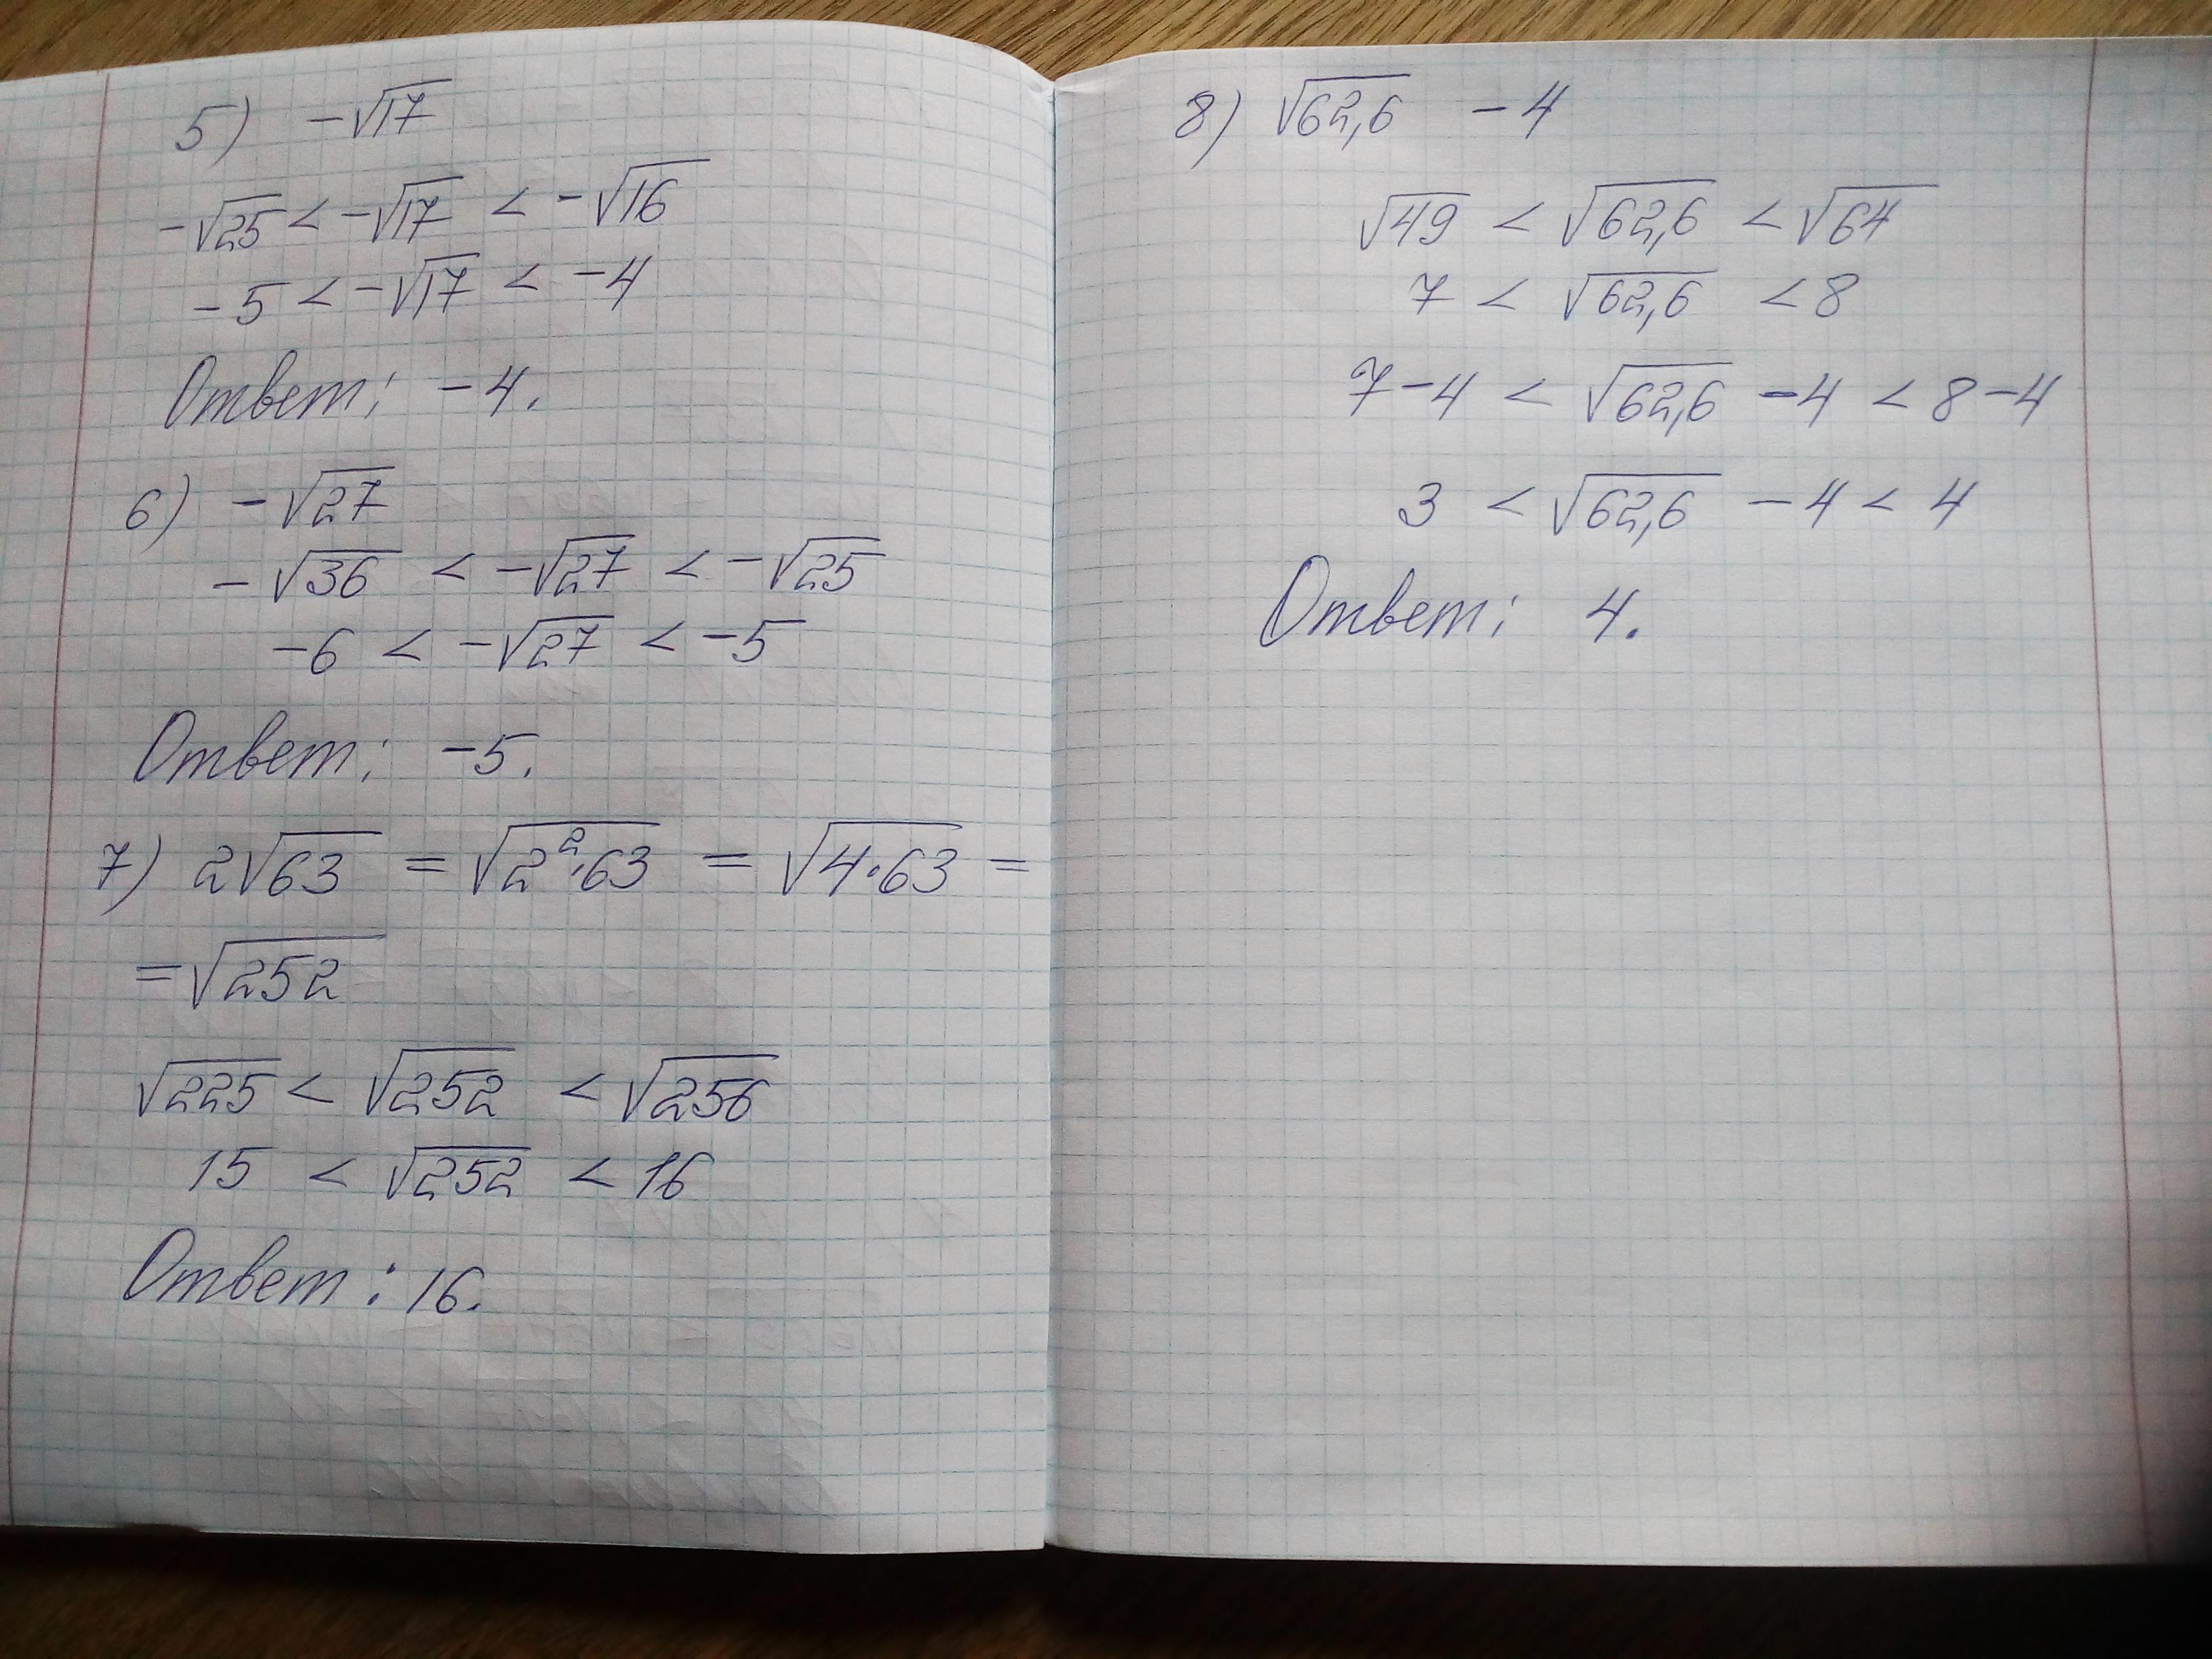 5) -√17
-√25 < -√17 < -√16
-5 < -√17 < -4
Ответ: -4.
6) -√27
-√36 < -√27 < -√25
-6 < -√27 < -5
Ответ: -5.
7) 2√63 = √2²·63 = √4·63 =
=√252
√225 < √252 < √256
15 < √252 < 16
Ответ: 16.
8) √62,6 - 4
√49 < √62,6 < √64
7 < √62,6 < 8
7-4 < √62,6 -4 < 8-4
3 < √62,6 -4 < 4
Ответ: 4.